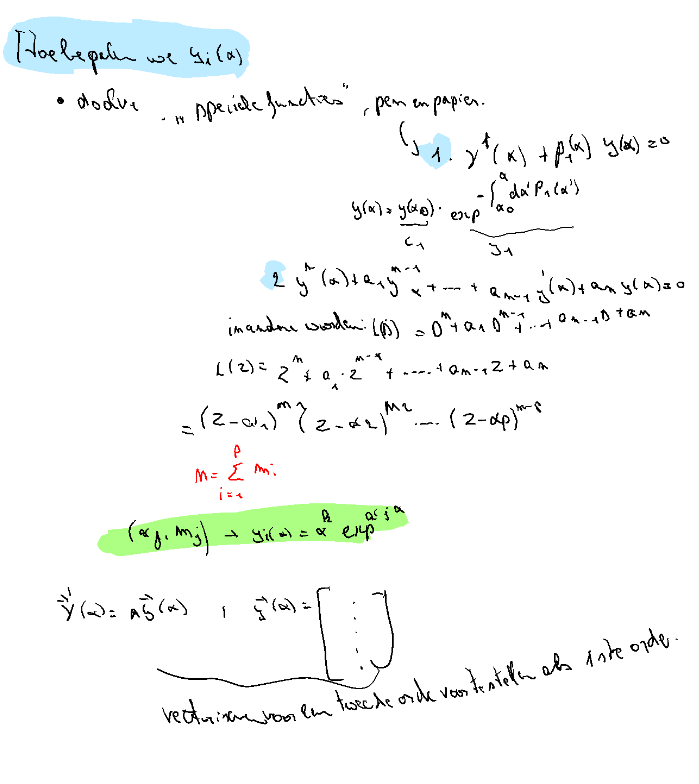 Hoe bepalen we y_i(x)
• dsolve "speciale functies", pen en papier.
1. y'(x) + p_1(x) y(x) = 0
y(x) = y(x_0) · exp -∫_{x_0}^{x} dx' p_1(x')
c_1 y_1
2 y^n(x) + a_1 y^{n-1} x + ... + a_{n-1} y'(x) + a_n y(x) = 0
in andere woorden: L(D) = D^n + a_1 D^{n-1} + ... + a_{n-1} D + a_n
L(z) = z^n + a_1 · z^{n-1} + ..... + a_{n-1} z + a_n
= (z - α_1)^{m_1} (z - α_2)^{m_2} .... (z - α_p)^{m_p}
n = Σ_{i=1}^{p} m_i
(α_j, m_j) → y_i(x) = x^k exp^{α_j x}
y⃗'(x) = A y⃗(x) , y⃗(x) = [ ⋮ ]
voor een tweede orde voor te stellen als 1ste orde.